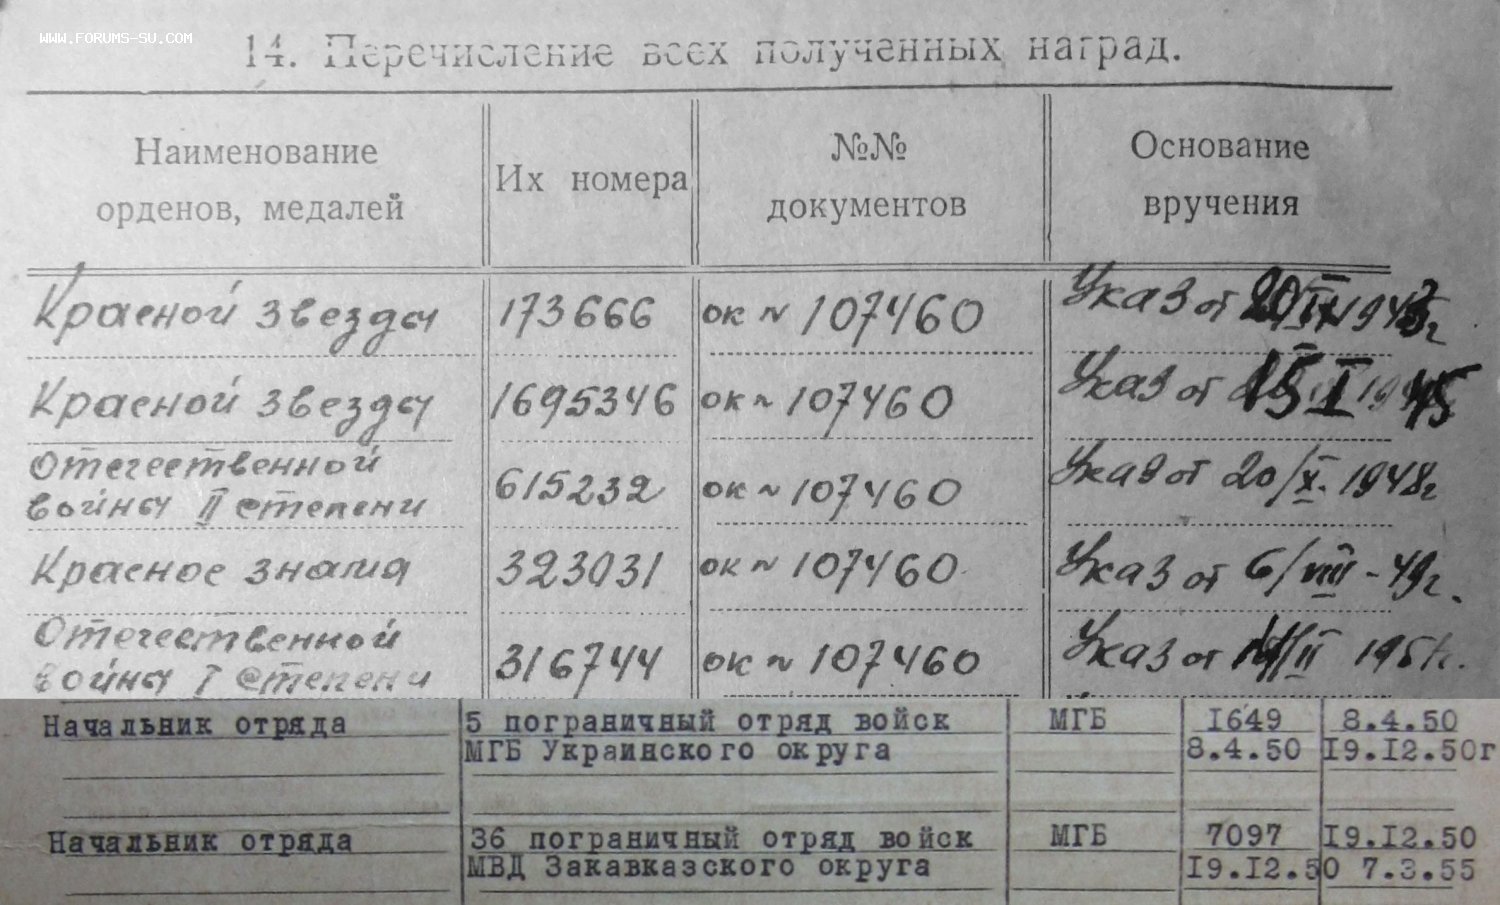 WWW.FORUMS-SU.COM
14. Перечисление всех полученных наград.
Наименование орденов, медалей
Их номера
№№ документов
Основание вручения
Красной звезды 173666 ок № 107460 Указ от 1943г
Красной звезды 1695346 ок № 107460 Указ от 15 I 1945
Отечественной
войны II степени 615232 ок № 107460 Указ от 20/X. 1948г
Красное знамя 323031 ок № 107460 Указ от 6/VIII - 49г.
Отечественной
войны I степени 316744 ок № 107460 Указ от 14/II 1951г.
Начальник отряда 5 пограничный отряд войск МГБ I649 8.4.50
МГБ Украинского округа 8.4.50 I9.I2.50г
Начальник отряда 36 пограничный отряд войск МГБ 7097 I9.I2.50
МВД Закавказского округа I9.I2.50 7.3.55